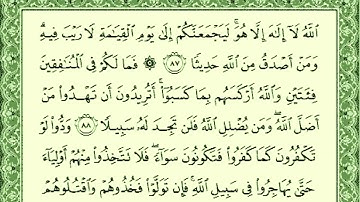 ٱللَّهُ لَآ إِلَٰهَ إِلَّا هُوَ ۚ لَيَجْمَعَنَّكُمْ إِلَىٰ يَوْمِ ٱلْقِيَٰمَةِ لَا رَيْبَ فِيهِ ۗ
وَمَنْ أَصْدَقُ مِنَ ٱللَّهِ حَدِيثًا ﴿٨٧﴾ ۞ فَمَا لَكُمْ فِى ٱلْمُنَٰفِقِينَ
فِئَتَيْنِ وَٱللَّهُ أَرْكَسَهُم بِمَا كَسَبُوٓا۟ ۚ أَتُرِيدُونَ أَن تَهْدُوا۟ مَنْ
أَضَلَّ ٱللَّهُ ۖ وَمَن يُضْلِلِ ٱللَّهُ فَلَن تَجِدَ لَهُۥ سَبِيلًا ﴿٨٨﴾ وَدُّوا۟ لَوْ
تَكْفُرُونَ كَمَا كَفَرُوا۟ فَتَكُونُونَ سَوَآءً ۖ فَلَا تَتَّخِذُوا۟ مِنْهُمْ أَوْلِيَآءَ
حَتَّىٰ يُهَاجِرُوا۟ فِى سَبِيلِ ٱللَّهِ ۚ فَإِن تَوَلَّوْا۟ فَخُذُوهُمْ وَٱقْتُلُوهُمْ